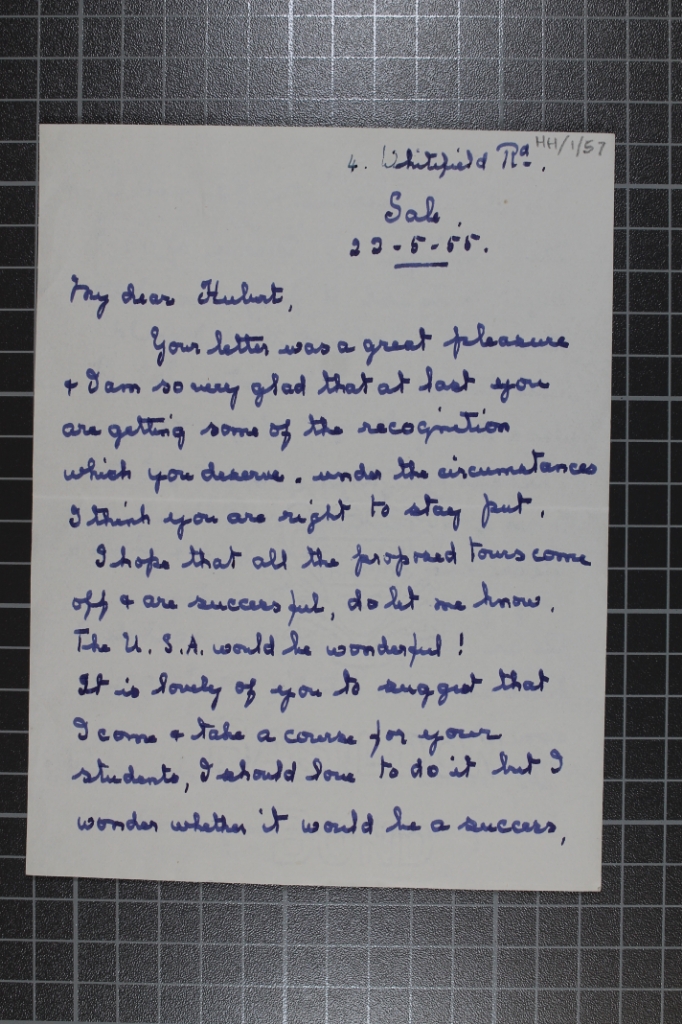 HH/1/57
4. Whitefield Rd.
Sale.
23-5-55.
My dear Hubert,
Your letter was a great pleasure
& I am so very glad that at last you
are getting some of the recognition
which you deserve. under the circumstances
I think you are right to stay put.
I hope that all the proposed tours come
off & are successful, do let me know.
The U.S.A. would be wonderful!
It is lovely of you to suggest that
I come & take a course for your
students, I should love to do it but I
wonder whether it would be a success,